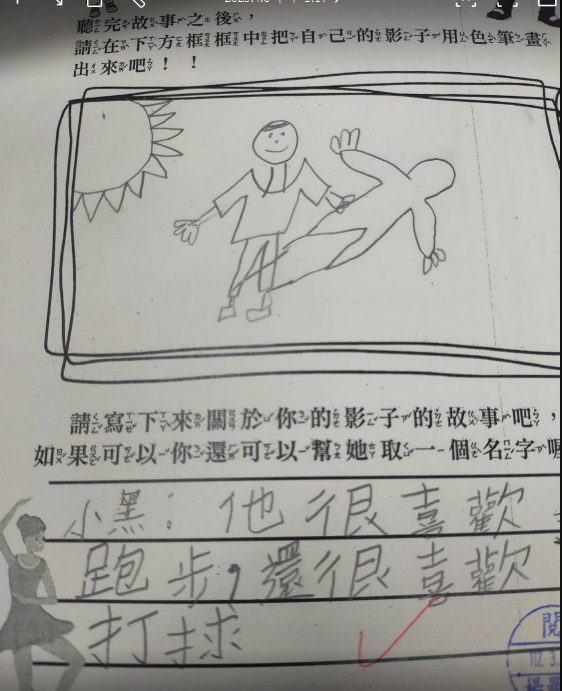 聽完故事之後，
請在下方框框中把自己的影子用色筆畫
出來吧！！
請寫下來關於你的影子的故事吧，
如果可以你還可以幫她取一個名字喔
小黑：他很喜歡
跑步，還很喜歡
打球
閱
112.3.